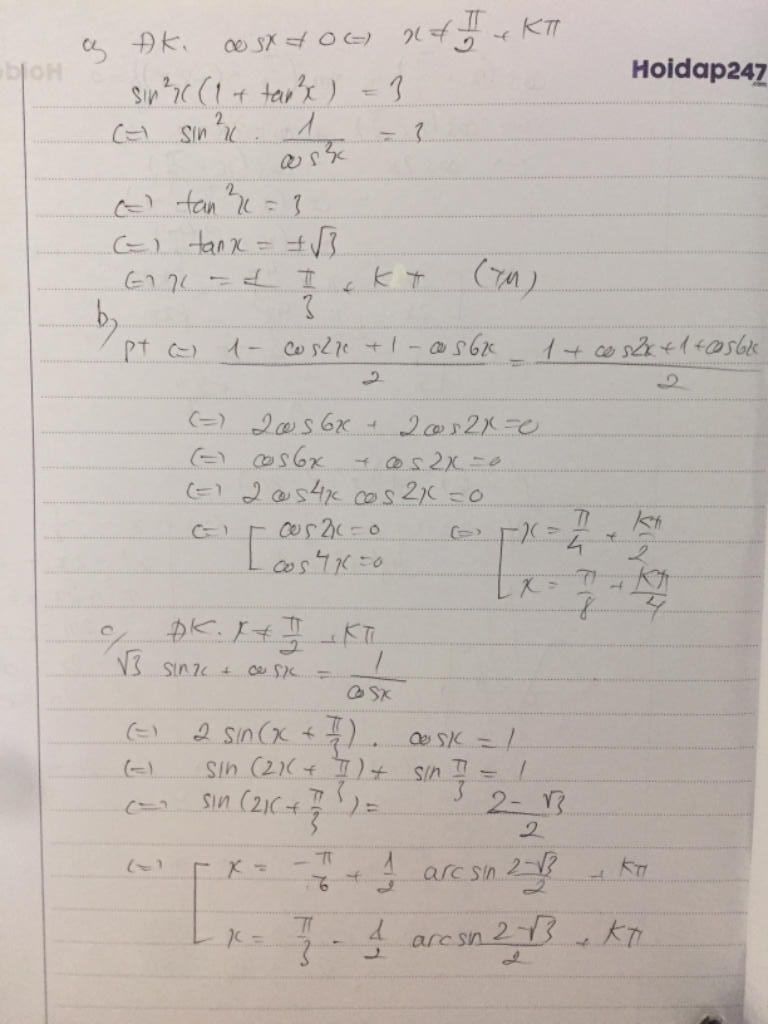 a) ĐK. cosx ≠ 0 <=> x ≠ π/2 + Kπ
Hoidap247
.com
sin²x(1 + tan²x) = 3
<=> sin²x . 1/cos²x = 3
<=> tan²x = 3
<=> tanx = ±√3
<=> x = ± π/3 + Kπ (TM)
b)
pt <=> (1 - cos2x + 1 - cos6x)/2 = (1 + cos2x + 1 + cos6x)/2
<=> 2cos6x + 2cos2x = 0
<=> cos6x + cos2x = 0
<=> 2cos4x cos2x = 0
<=> [ cos2x = 0 <=> [ x = π/4 + Kπ/2
cos4x = 0 x = π/8 + Kπ/4
c) ĐK. x ≠ π/2 + Kπ
√3 sinx + cosx = 1/cosx
<=> 2 sin(x + π/3) . cosx = 1
<=> sin(2x + π/3) + sin π/3 = 1
<=> sin(2x + π/3) = (2-√3)/2
<=> [ x = -π/6 + 1/2 arcsin (2-√3)/2 + Kπ
x = π/3 - 1/2 arcsin (2-√3)/2 + Kπ